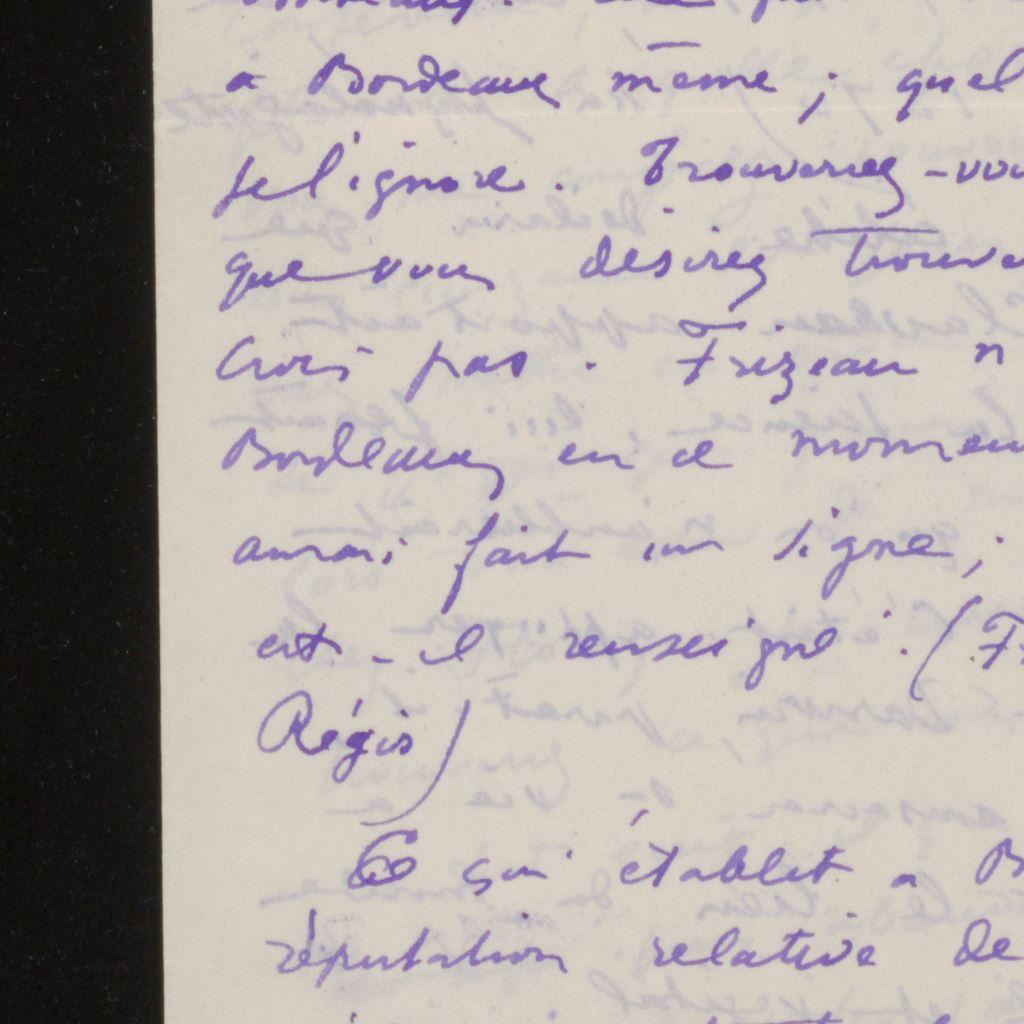 à Bordeaux même ; quel
je l'ignore. Trouverez-vou
que vous désirez trouve
crois pas. Frizeau n
Bordeaux en ce momen
aurai fait un signe ;
est-il renseigné. (F
Régis)
Ce qui établit à B
réputation relative de